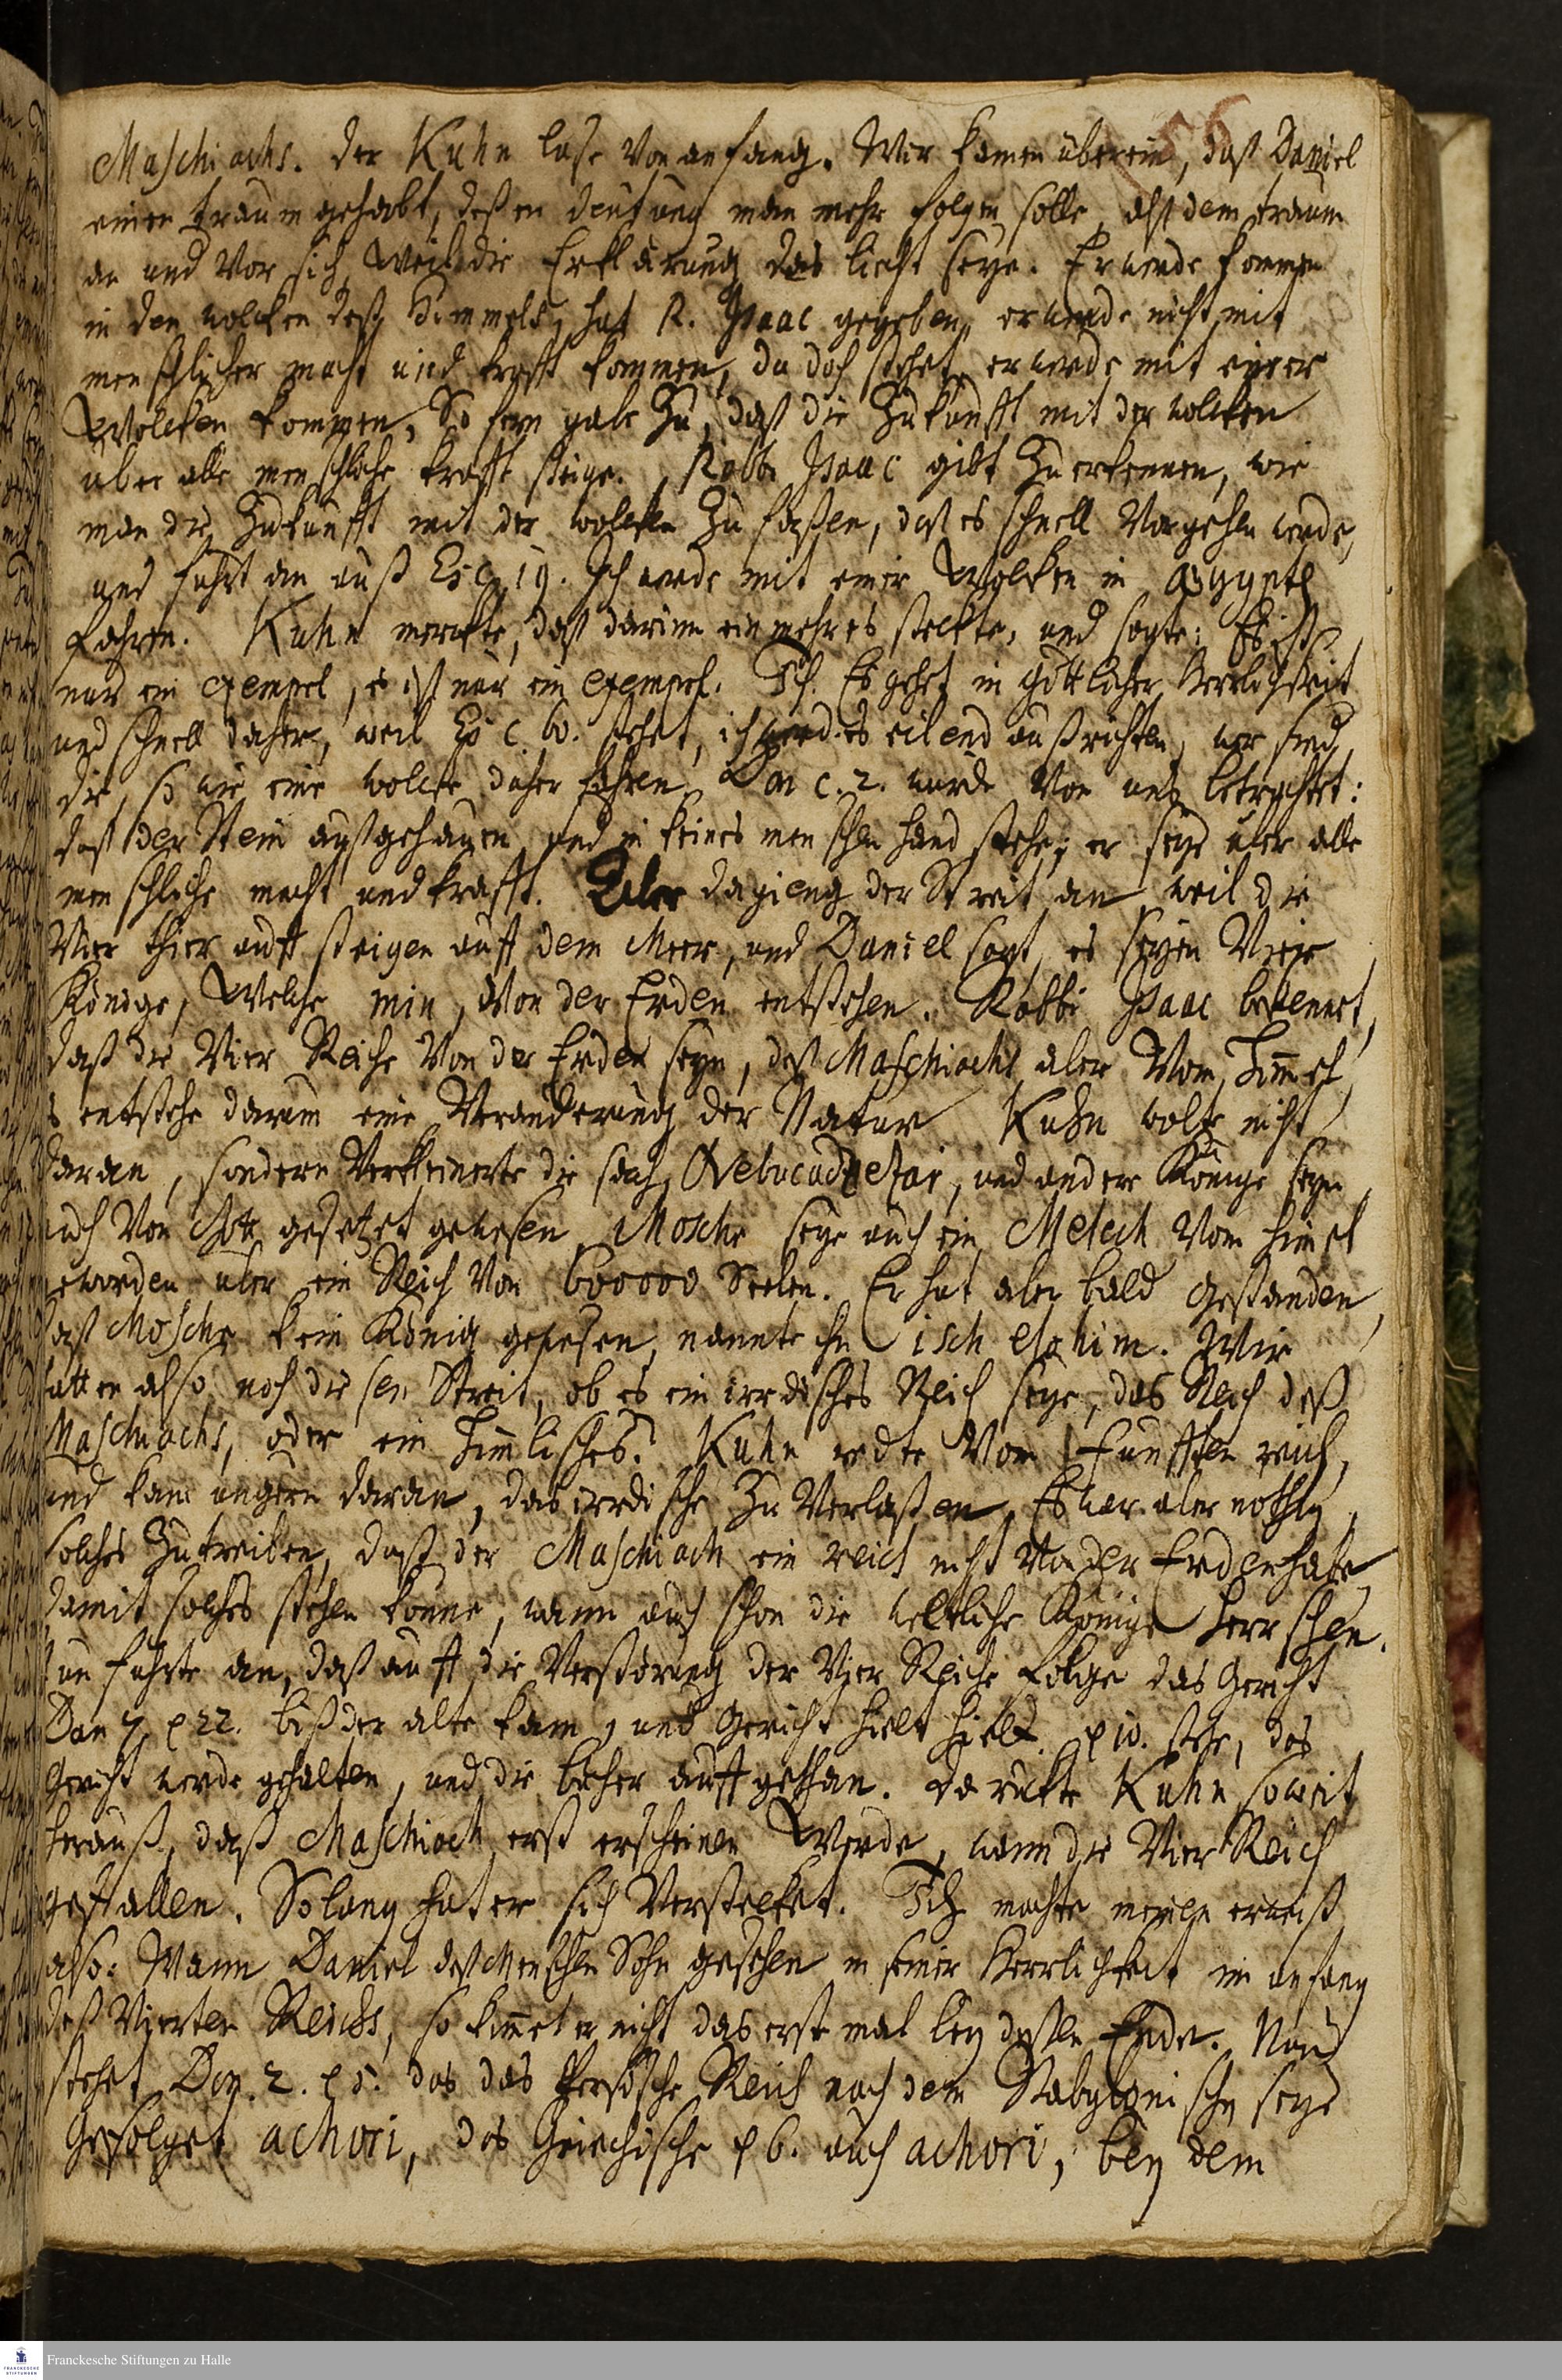 156
Maschiachs. der Kuhn lase von anfang. Wir kamen überein, daß Daniel
einen traum gehabt, deßen deutung man mehr folgen solle, alß dem traum
an und vor sich, weil die Erklärung das liecht seye. Er werde kommen
in den wolcken deß Himmels, hat R. Isaac gegeben, er werde nicht mit
menschlicher macht und krafft kommen, da doch stehet, er werde mit einer
Wolcken kommen, So fern gabe zu, daß die Zukunfft mit der wolcken
über alle menschliche krafft steige. Rabbi Isaac gibt zu erkennen, wie
man die Zukunfft mit der wolcken zu faßen, daß es schnell vorgehen werde,
und führt an auß Es. c. 19. Ich werde mit einer Wolcken in Egypten
fahren. Kuhn merckte, daß darinn ein mehres steckte, und sagte: Es ist
nur ein exempel, es ist nur ein exempel. Ich. Es gehet in göttlicher Herrlichkeit
und schnell daher, weil Es. c. 60. stehet, ich werd es eilend außrichten, wer sind
die, so wie eine wolcke daher fahren. Dan c. 2. wurde von uns betrachtet:
daß der Stein außgehauen und in keines menschen hand stehe; er seye über alle
menschliche macht und krafft. Aber da gieng der Streit an, weil die
Vier thier auff steigen auß dem Meer, und Daniel sagt, es seyen Vier
Könige, Welche min, Von der Erden entstehen. Rabbi Isaac bekennet,
daß die Vier Reiche Von der Erden seyn, deß Maschiachs aber Vom Himmel,
es entstehe darum eine Veränderung der Natur. Kuhn wolte nicht
daran, sondern Verkleinerte die sach, Nebucadnezar, und andere Könige seyn
auch Von Gott gesetzet gewesen, Mosche seye auch ein Melech Vom himel
worden über ein Reich Von 600000 Seelen. Er hat aber bald gestanden,
daß Mosche kein König gewesen, nannte ihn isch elohim. Wir
hatten also noch diesen Streit, ob es ein irrdisches Reich seye, das Reich deß
Maschiachs, oder ein himlisches? Kuhn redte Vom Funfften reich,
und kam ungern daran, das irrdische zu Verlaßen. Es war aber nöthig
solches zu treiben, daß der Maschiach ein reich nicht Von der Erden habe,
damit solches stehen könne, wann auch schon die weltliche Könige herrschen.
Kuhn führte an, daß auff die Verstörung der Vier Reiche folge das Gericht
Dan 7, v 22. biß der alte kam, und Gericht hielt hielt. v 10. stehe, das
Gericht werde gehalten, und die bücher auffgethan. Da rückte Kuhn so weit
herauß, daß Maschiach erst erscheinen Werde, wann die Vier Reich
gefallen. So lang hat er sich Verstecket. Ich machte meinen erweiß
also: Wann Daniel deß Menschen Sohn gesehen in seiner Herrlichkeit im anfang
deß Vierten Reichs, so kommet er nicht das erste mal bey deßen Ende. Nun
stehet Dan. 7. v 5. das das Persische Reich nach dem Babylonischen seye
Gefolget achori, das Griechische v 6. auch achori, bey dem
Franckesche Stiftungen zu Halle